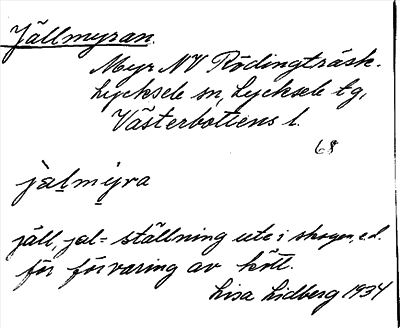 Jällmyran.
Myr NV Rödingträsk.
Lycksele sn, Lycksele tg,
Västerbottens l.
68
jälmyra
jäll, jal = ställning ute i skogen, e.d.
för förvaring av kött.
Lisa Lidberg 1934